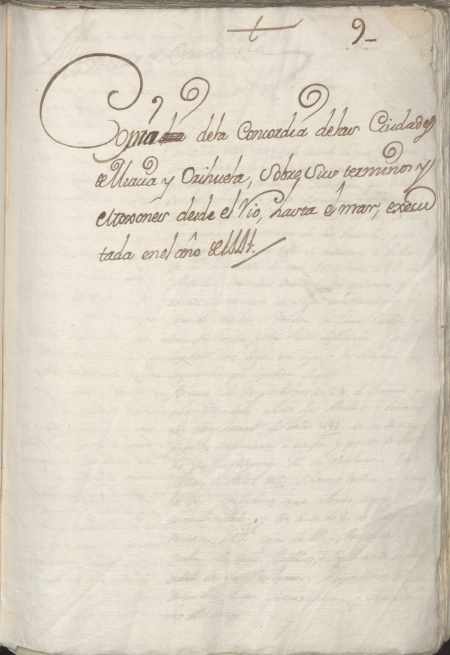 9
Copia de la Concordia de las Ciudades
de Murcia y Orihuela, sobre sus terminos y
mojones desde el rio, hasta el mar, execu
tada en el año de